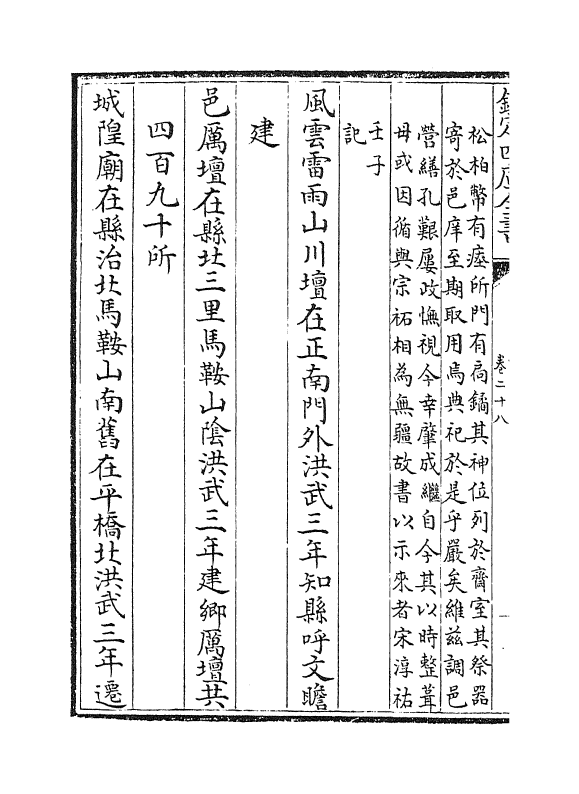 欽定四庫全書
卷二十八
松柏幣有瘞所門有扄鐍其神位列於齋室其祭器
寄於邑庠至期取用焉典祀於是乎嚴矣維兹調邑
營繕孔艱屢政憮視今幸肇成繼自今其以時整葺
毋或因循與宗祏相為無疆故書以示來者宋淳祐
壬子
記
風雲雷雨山川壇在正南門外洪武三年知縣呼文瞻
建
邑厲壇在縣北三里馬鞍山陰洪武三年建鄉厲壇共
四百九十所
城隍廟在縣治北馬鞍山南舊在平橋北洪武三年遷